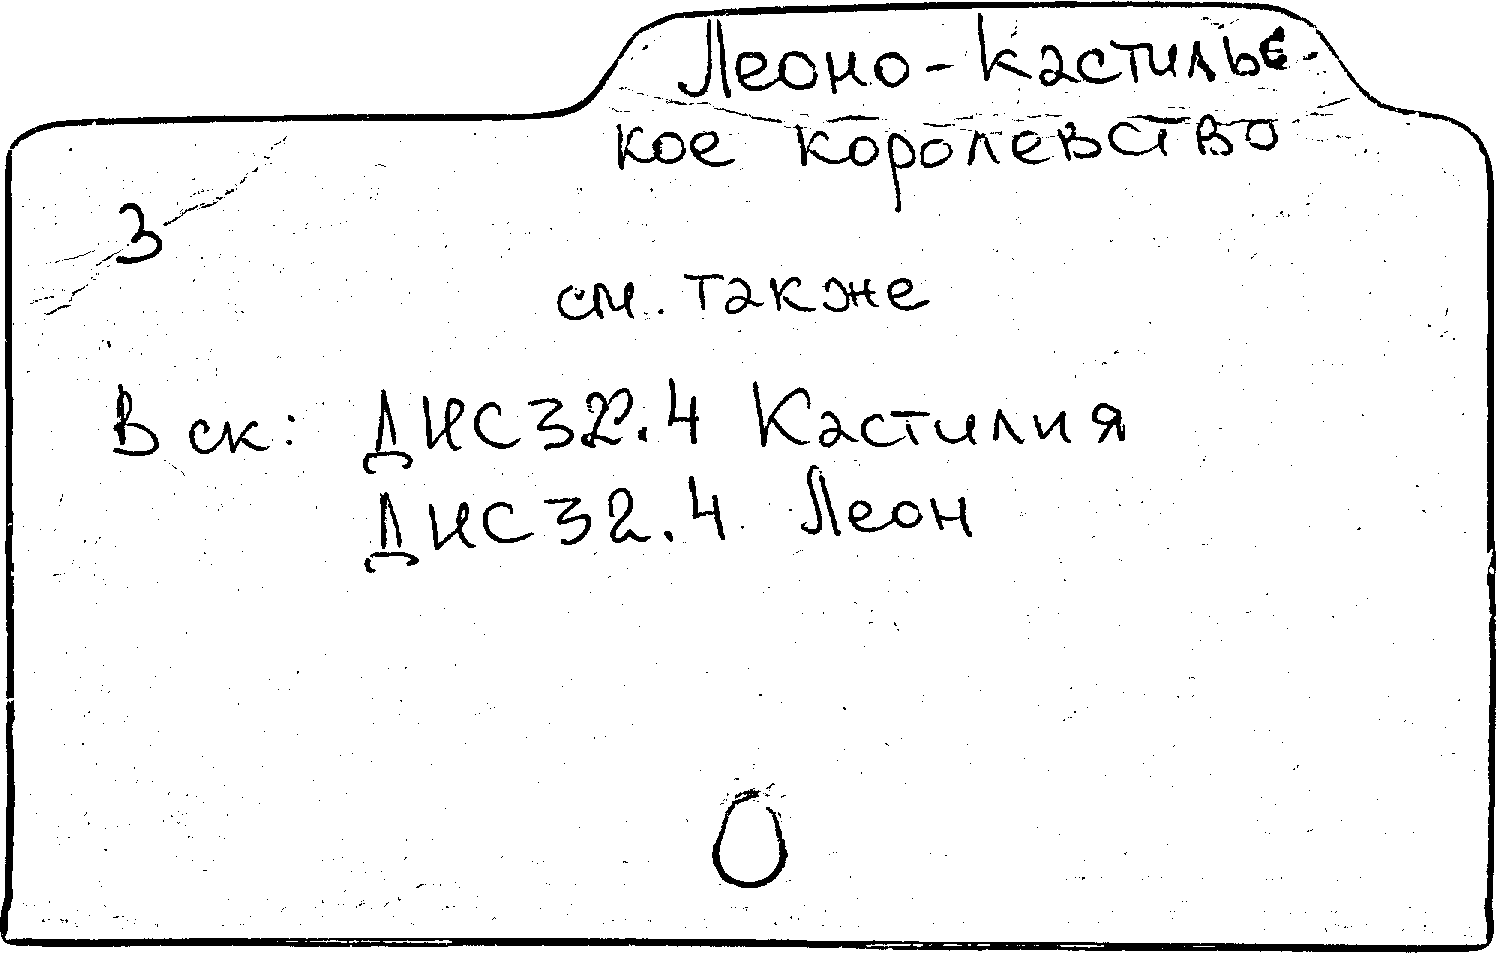 Леоно-Кастильс-
кое королевство
3
см. также
В ск: ДИС32.4 Кастилия
ДИС32.4 Леон